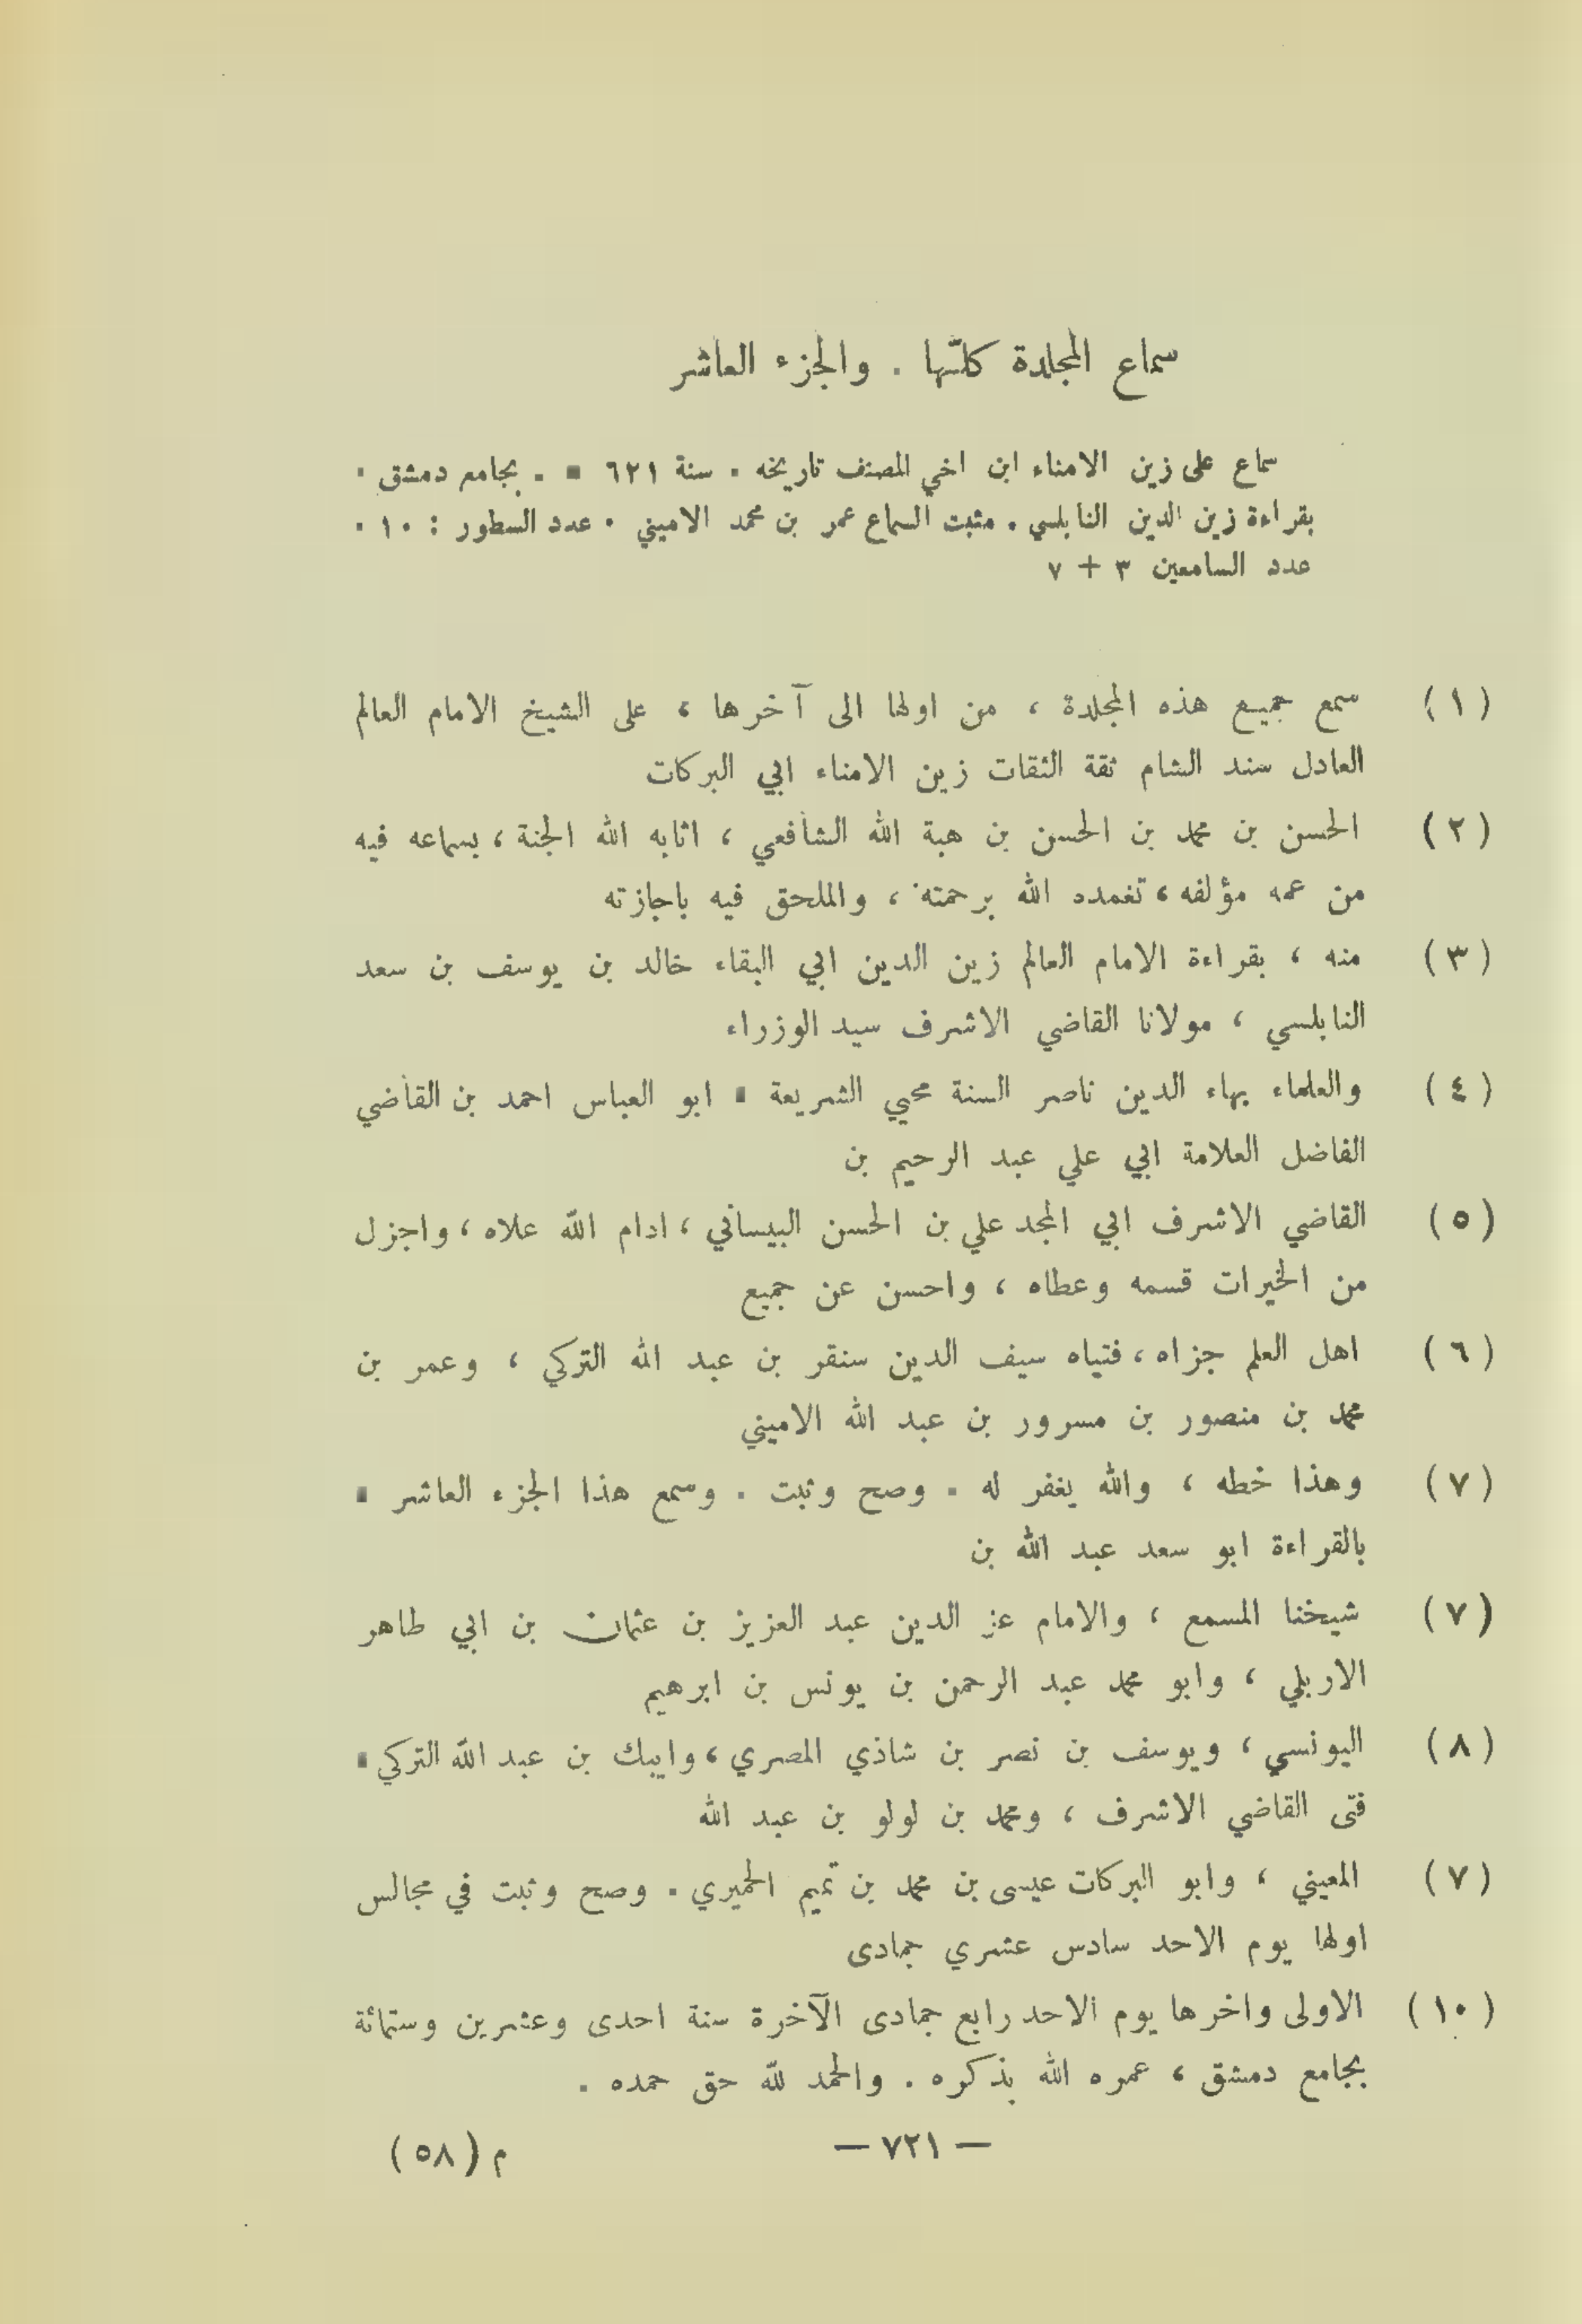 سماع المجلدة كلّها . والجزء العاشر
سماع على زين الامناء ابن اخي المصنف تاريخه . سنة ٦٢١ . . بجامع دمشق .
بقراءة زين الدين النابلسي . مثبت السماع عمر بن محمد الاميني . عدد السطور : ١٠ .
عدد السامعين ٣ + ٧
(١) سمع جميع هذه المجلدة ، من اولها الى آخرها ، على الشيخ الامام العالم
العادل سند الشام ثقة الثقات زين الامناء ابي البركات
(٢) الحسن بن محمد بن الحسن بن هبة الله الشافعي ، اثابه الله الجنة ، بسماعه فيه
من عمه مؤلفه ، تغمده الله برحمته ، والملحق فيه باجازته
(٣) منه ، بقراءة الامام العالم زين الدين ابي البقاء خالد بن يوسف بن سعد
النابلسي ، مولانا القاضي الاشرف سيد الوزراء
(٤) والعلماء بهاء الدين ناصر السنة محيي الشريعة . ابو العباس احمد بن القاضي
الفاضل العلامة ابي علي عبد الرحيم بن
(٥) القاضي الاشرف ابي المجد علي بن الحسن البيساني ، ادام الله علاه ، واجزل
من الخيرات قسمه وعطاه ، واحسن عن جميع
(٦) اهل العلم جزاه ، فتياه سيف الدين سنقر بن عبد الله التركي ، وعمر بن
محمد بن منصور بن مسرور بن عبد الله الاميني
(٧) وهذا خطه ، والله يغفر له . وصح وثبت . وسمع هذا الجزء العاشر .
بالقراءة ابو سعد عبد الله بن
(٧) شيخنا المسمع ، والامام عز الدين عبد العزيز بن عثمان بن ابي طاهر
الاربلي ، وابو محمد عبد الرحمن بن يونس بن ابرهيم
(٨) اليونسي ، ويوسف بن نصر بن شاذي المصري ، وايبك بن عبد الله التركي .
فتى القاضي الاشرف ، ومحمد بن لولو بن عبد الله
(٧) المعيني ، وابو البركات عيسى بن محمد بن تميم الحميري . وصح وثبت في مجالس
اولها يوم الاحد سادس عشري جمادى
(١٠) الاولى واخرها يوم الاحد رابع جمادى الآخرة سنة احدى وعشرين وستمائة
بجامع دمشق ، عمره الله بذكره . والحمد لله حق حمده .
— ٧٢١ — م (٥٨)